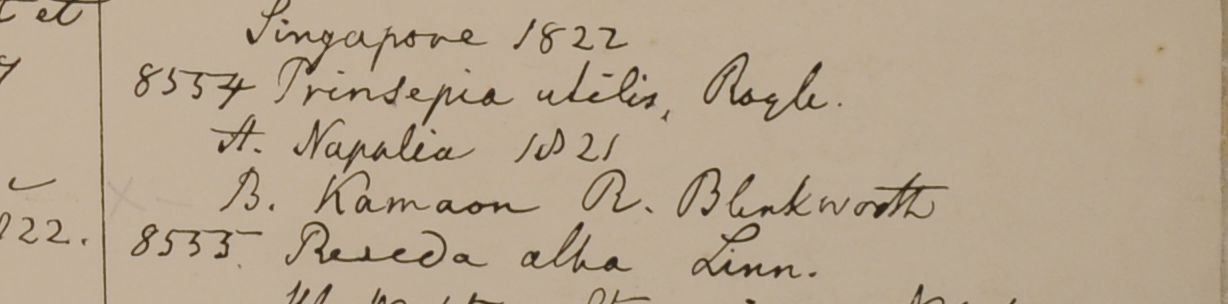 t et
Singapore 1822
8554 Prinsepia utilis, Royle.
A. Napalia 1821
B. Kamaon R. Blinkworth
822.
8555 Reseda alba Linn.